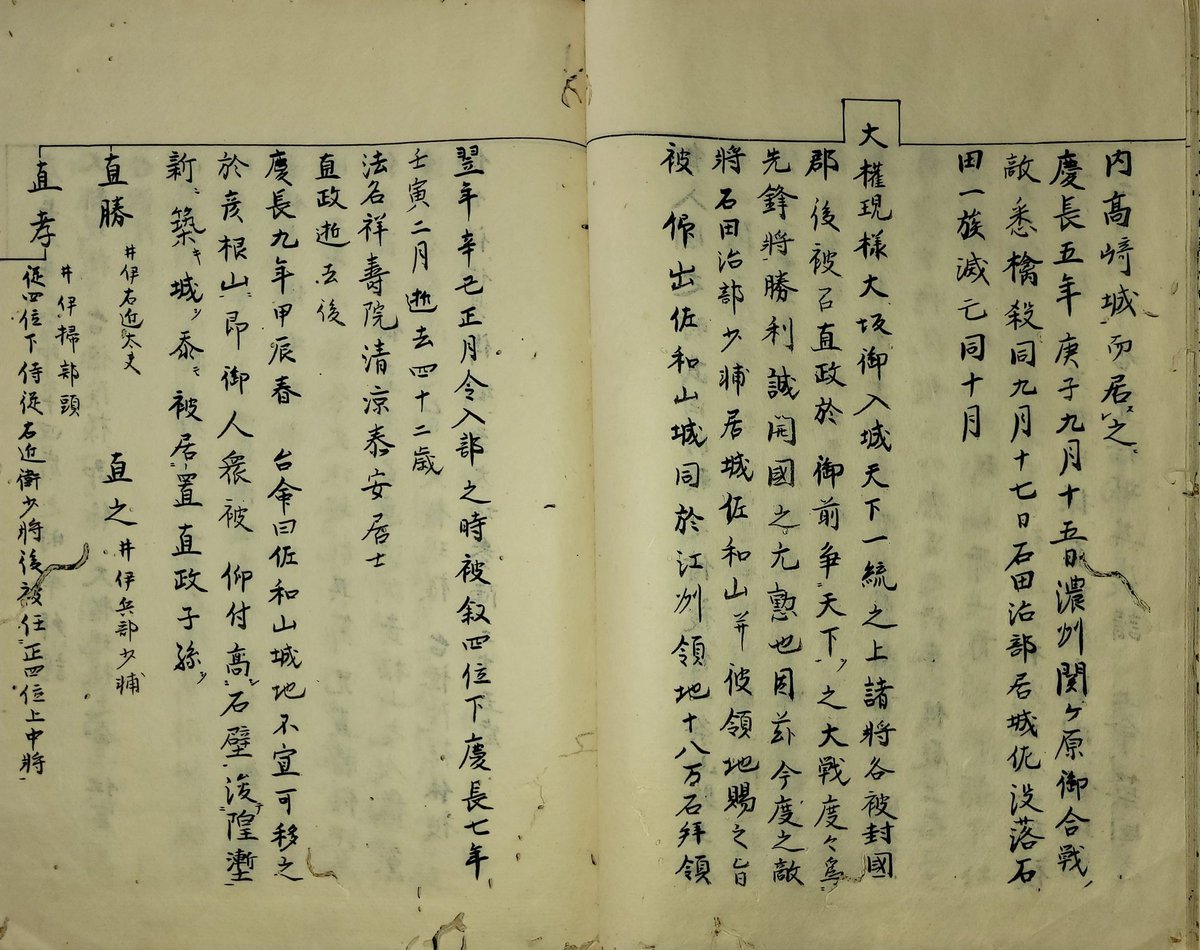 内高崎城而居之
慶長五年庚子九月十五日濃州関ヶ原御合戦
敵悉檎殺同九月十七日石田治部居城佐没落石
田一族滅亡同十月
大権現様大坂御入城天下一統之上諸将各被封國
郡後被召直政於 御前争天下ノ之大戦度々為
先鋒将勝利誠開國之元勲也因茲今度之敵
将石田治部少輔居城佐和山并彼領地賜之旨
被 仰出佐和山城同於江州領地十八万石拝領
翌年辛丑正月令入部之時被叙四位下慶長七年
壬寅二月逝去四十二歳
法名祥壽院清凉泰安居士
直政逝去後
慶長九年甲辰春 台命曰佐和山城地不宜可移之
於彦根山即御人衆被 仰付高石壁浚隍塹
新ニ築キ城ヲ泰被居置直政子孫ヲ
直勝 井伊右近太夫 直之 井伊兵部少輔
直孝 井伊掃部頭
従四位下侍従右近衛少将後被任正四位上中将